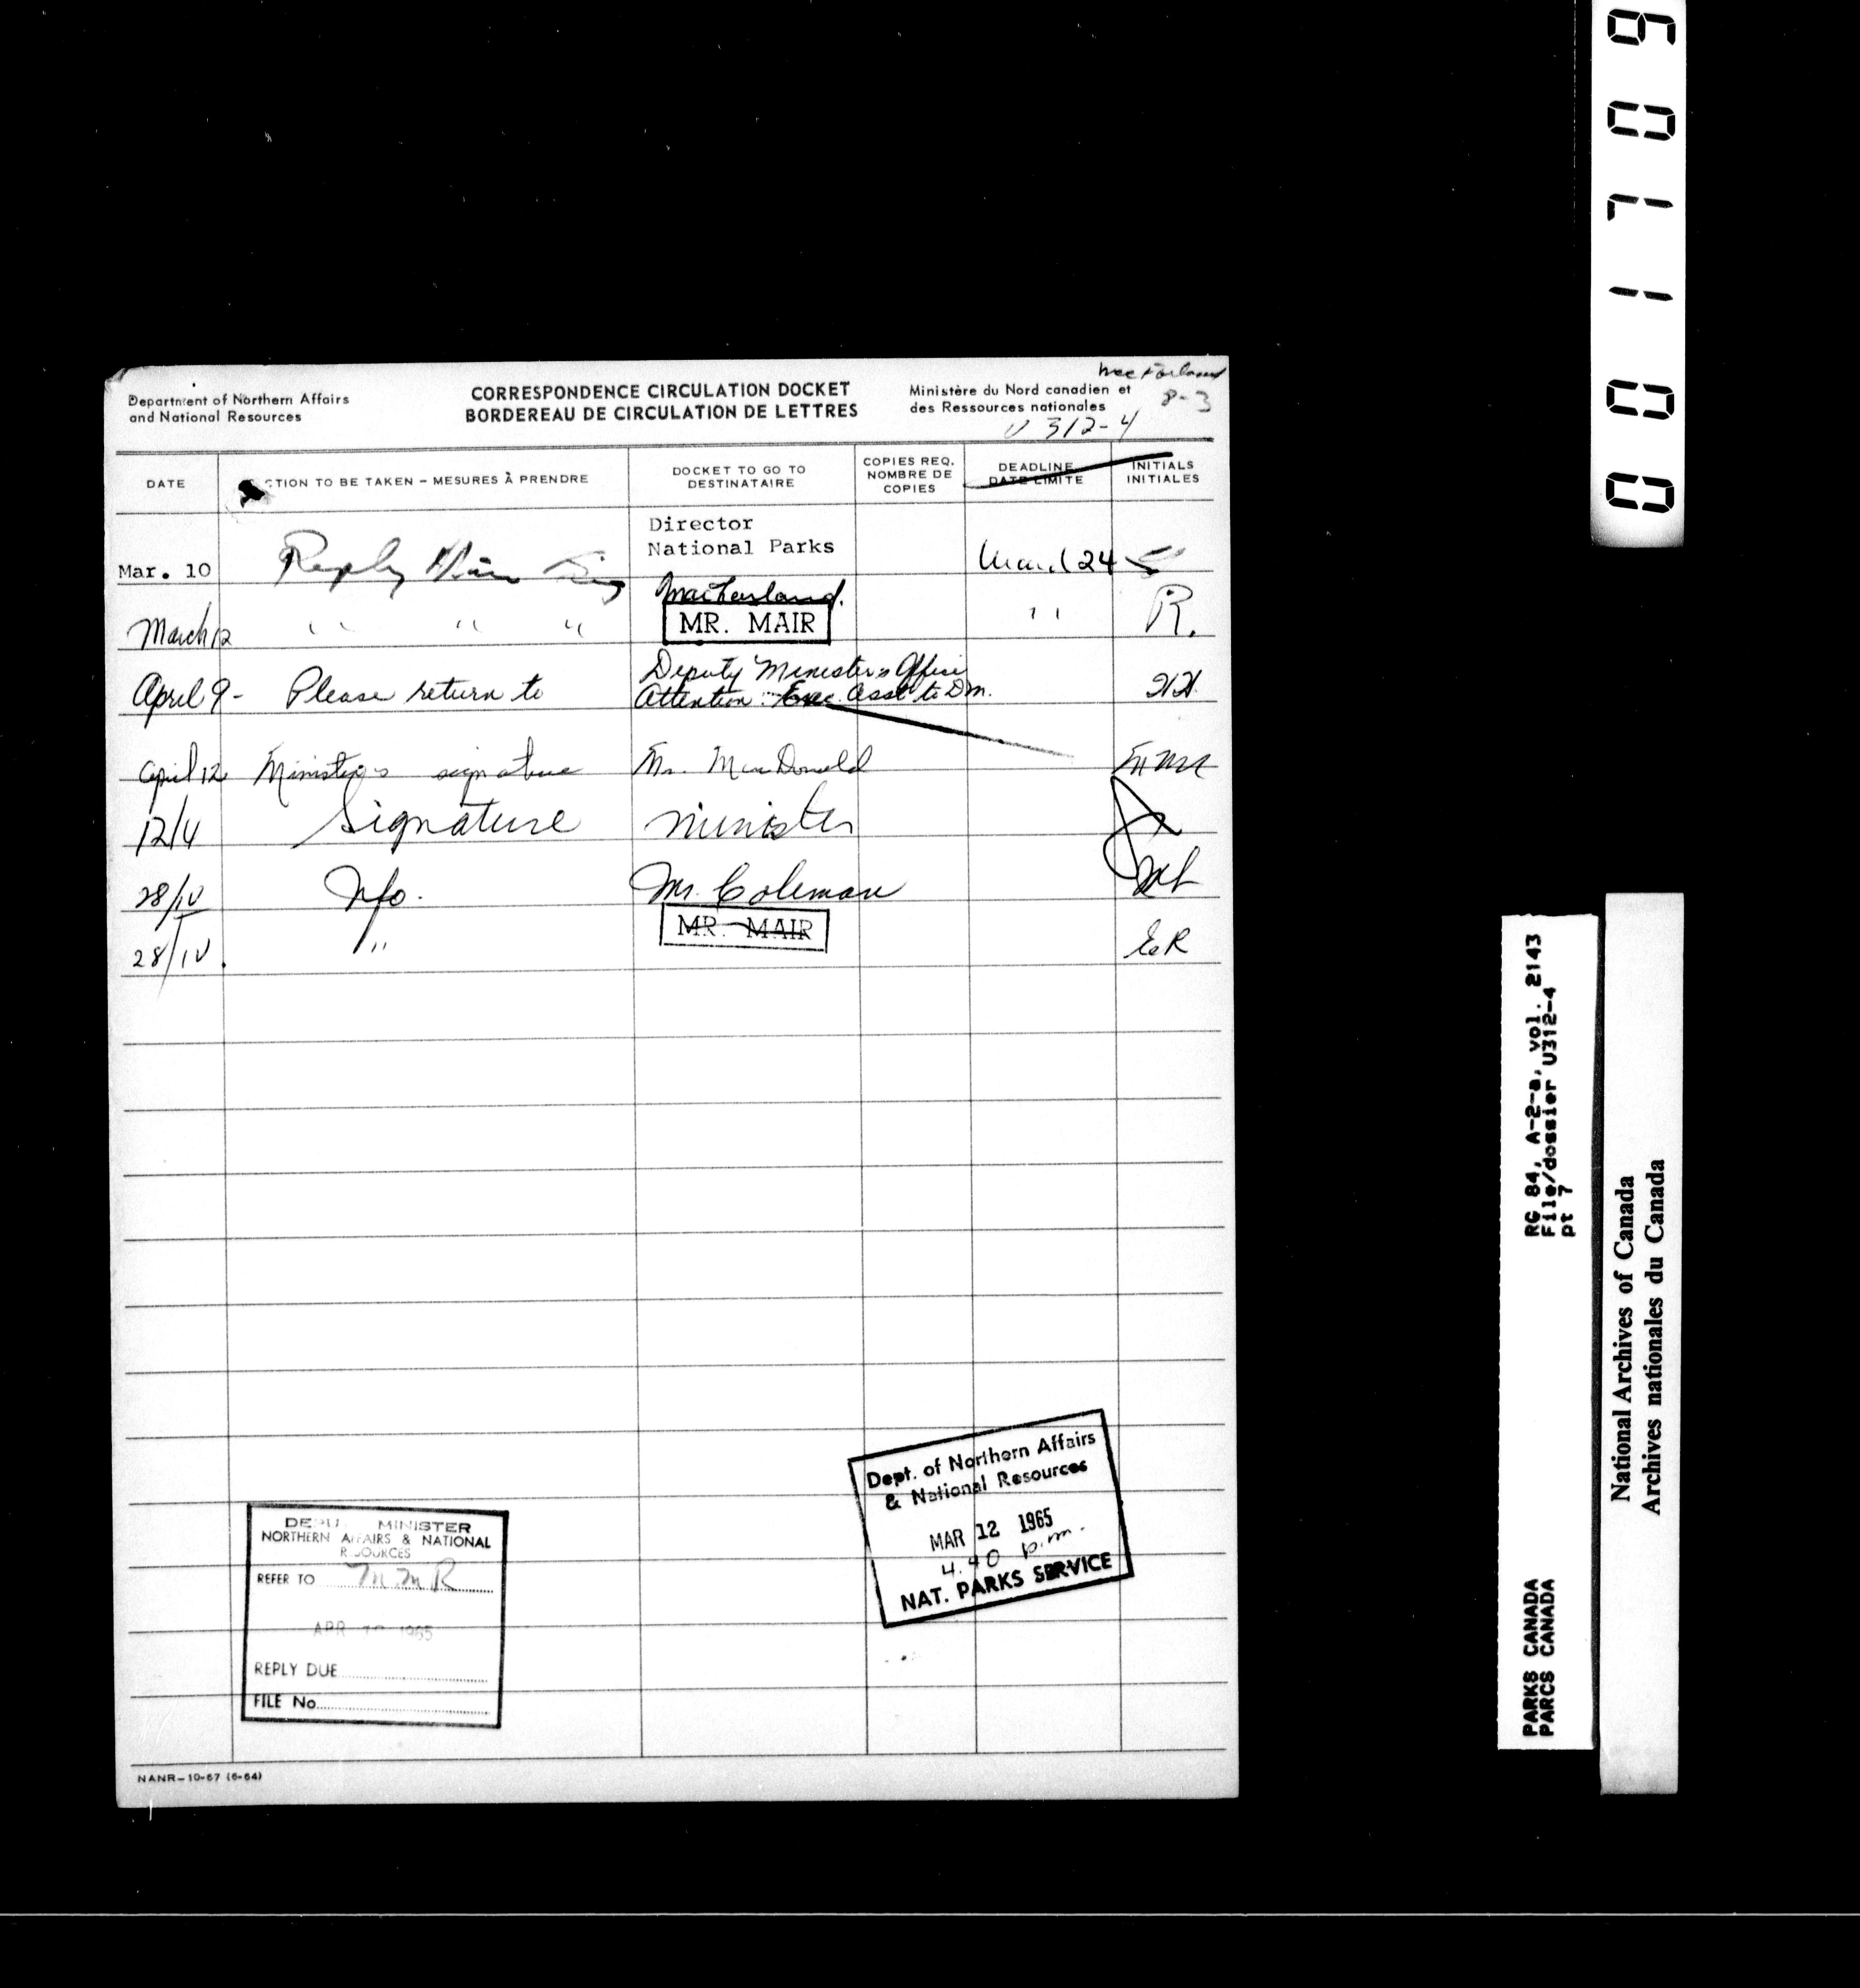 MacFarland
8-3
Department of Northern Affairs
and National Resources
CORRESPONDENCE CIRCULATION DOCKET
BORDEREAU DE CIRCULATION DE LETTRES
Ministère du Nord canadien et
des Ressources nationales
U 312-4
DATE
CTION TO BE TAKEN – MESURES À PRENDRE
DOCKET TO GO TO
DESTINATAIRE
COPIES REQ.
NOMBRE DE
COPIES
DEADLINE
DATE LIMITE
INITIALS
INITIALES
Director
National Parks
Mar. 10 Reply Min Sig March 24
MacFarland.
March 12 " " " MR. MAIR " R.
Deputy Minister's Office
April 9 - Please return to Attention: Exec. Asst to D.M.
April 12 Minister's signature Mr. MacDonald
12/4 Signature Minister
28/IV Info. Mr. Coleman
28/IV. " MR. MAIR ER
Dept. of Northern Affairs
& National Resources
MAR 12 1965
4.40 p.m.
NAT. PARKS SERVICE
DEPU MINISTER
NORTHERN AFFAIRS & NATIONAL
RESOURCES
REFER TO M.M.R
APR 1965
REPLY DUE
FILE No.
NANR–10-67 (6-64)
001709
RG 84, A-2-a, vol. 2143
File/dossier U312-4
pt 7
PARKS CANADA
PARCS CANADA
National Archives of Canada
Archives nationales du Canada